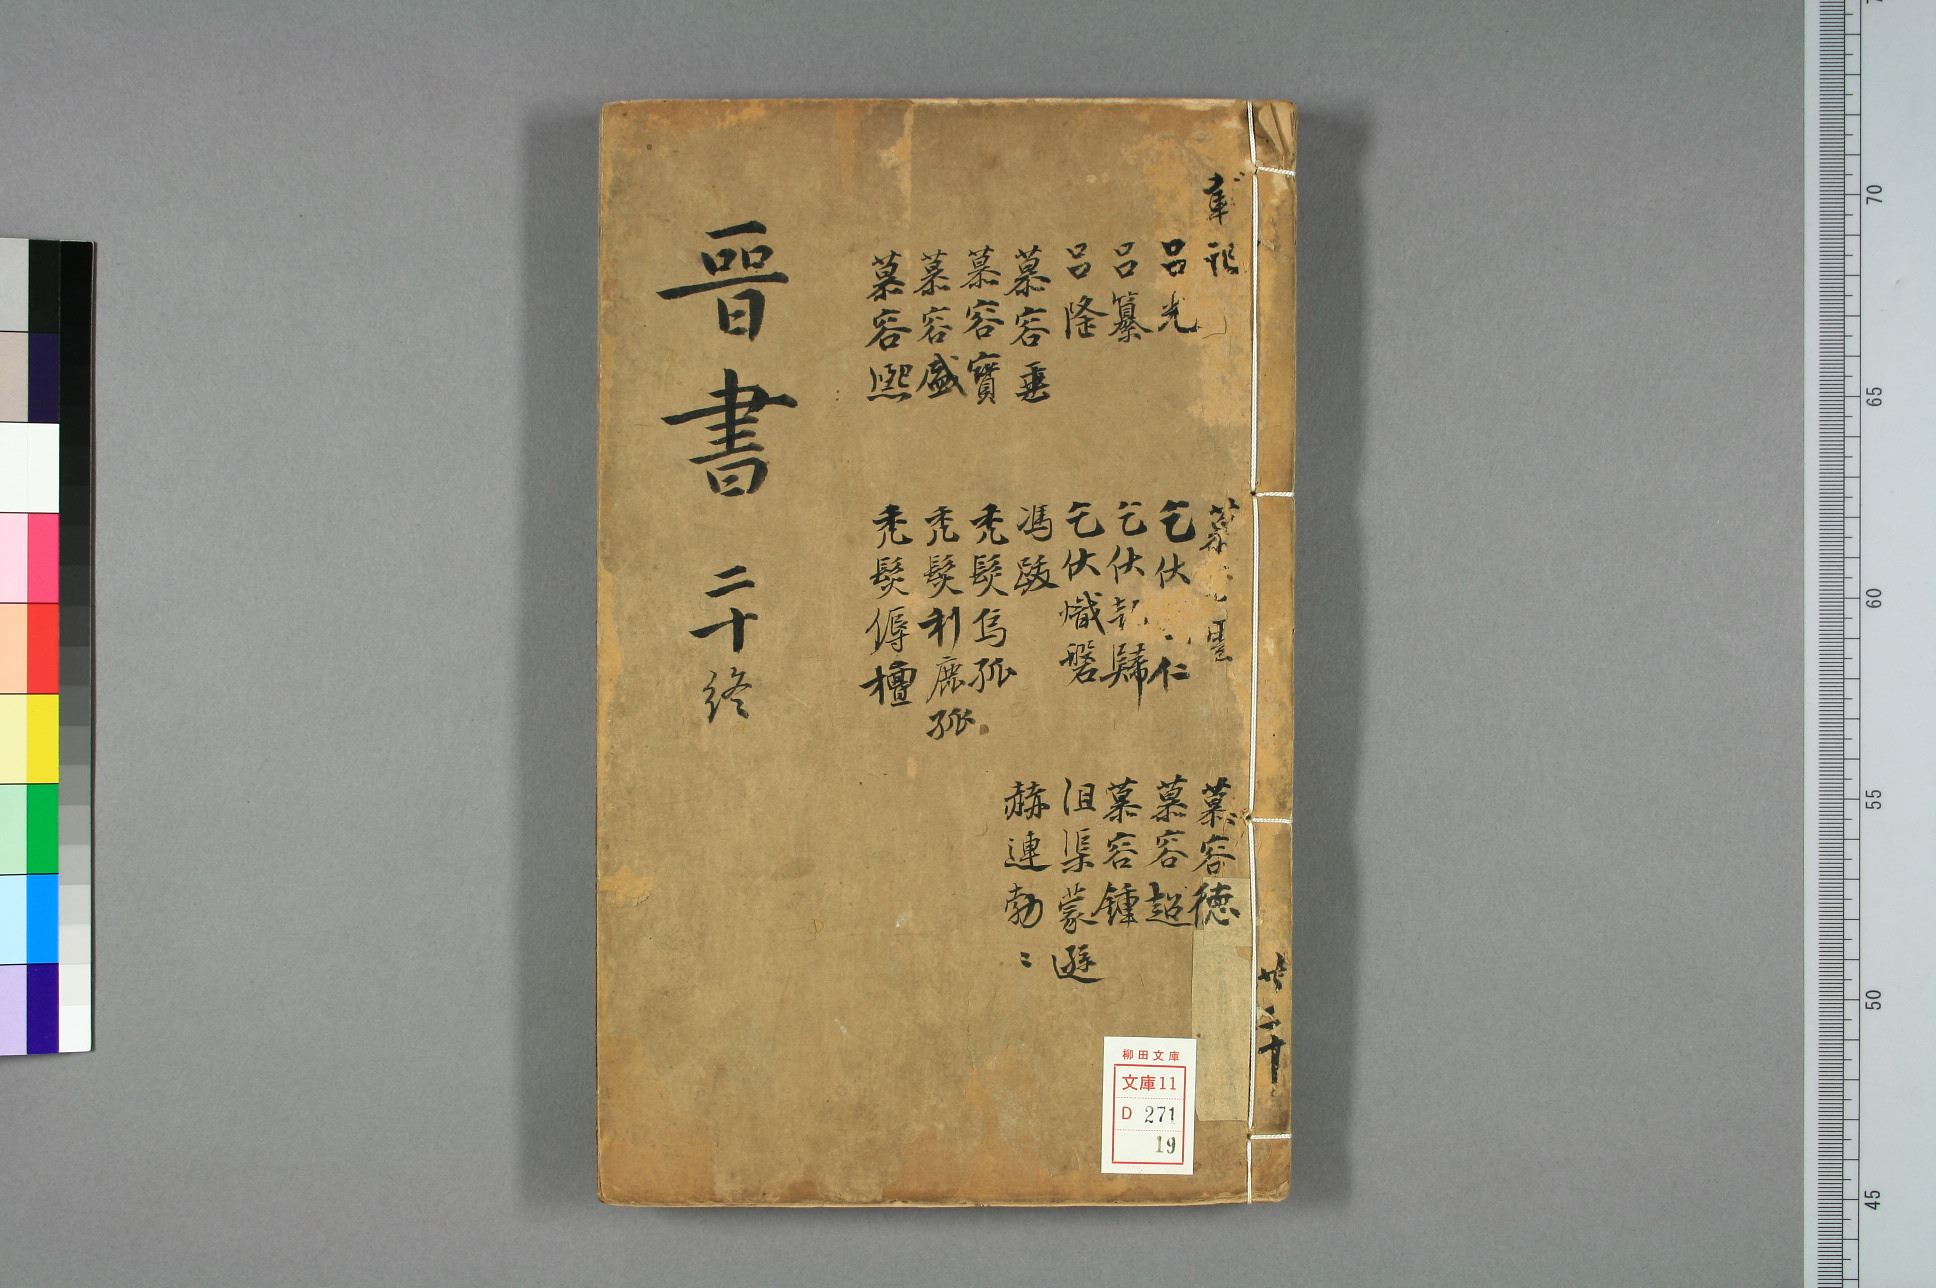 載記
呂光
呂纂
呂隆
慕容垂
慕容寳
慕容盛
慕容熙
慕 雲
乞伏 仁
乞伏乹歸
乞伏熾磐
馮跋
禿髮烏孤
禿髮利鹿孤
禿髮傉檀
慕容德
慕容超
慕容鍾
沮渠蒙遜
赫連勃〻
晉書 二十終
共二十
柳田文庫
文庫11
D 271
19
70
65
60
55
50
45